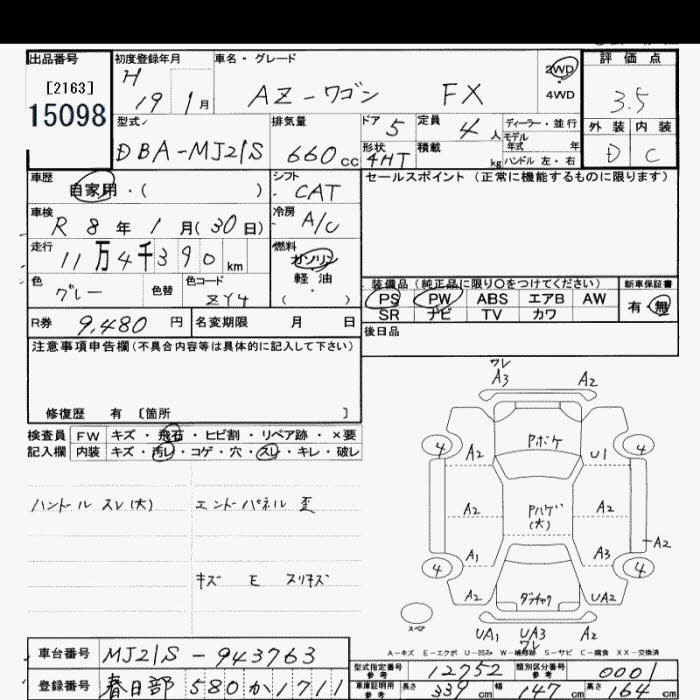 出品番号 初度登録年月 車名・グレード 2WD 評価点
[2163] H 19 1月 AZ-ワゴン FX 4WD 3.5
15098 型式 排気量 ドア 5 定員 4人 ディーラー・並行 外装 内装
DBA-MJ21S 660cc 形状 4HT 積載 kg モデル年式 年 ハンドル 左・右 D C
車歴 自家用・( ) シフト CAT セールスポイント (正常に機能するものに限ります)
車検 R 8年 1月(30日) 冷房 A/C
走行 11万4千390km 燃料 ガソリン
軽油
( )
色 グレー 色替 色コード ZY4 装備品(純正品に限り○をつけてください) 新車保証書
PS PW ABS エアB AW 有・無
SR ナビ TV カワ
R券 9,480円 名変期限 月 日 後日品
注意事項申告欄(不具合内容等は具体的に記入して下さい)
修復歴 有 〔箇所 〕
検査員 FW キズ・飛石・ヒビ割・リペア跡・×要
記入欄 内装 キズ・汚レ・コゲ・穴・スレ・キレ・破レ
ハンドル スレ(大) エンドパネル 歪
キズ E スリキズ
ワレ
A3 A2
Pボケ
4 A2 U1 4
A2 Pハゲ(大) A2
A2
A1 A3
4 4
A2 ダンチャク UA2
スペア
UA1 UA3 A2
ワレ
A-キズ E-エクボ U-凹み W-補修跡 S-サビ C-腐食 XX-交換済
車台番号 MJ21S-943763
型式指定番号 参考 12752 類別区分番号 参考 0001
登録番号 春日部 580 か 1711
車庫証明用 参考 長さ 339cm 幅 147cm 高さ 164cm